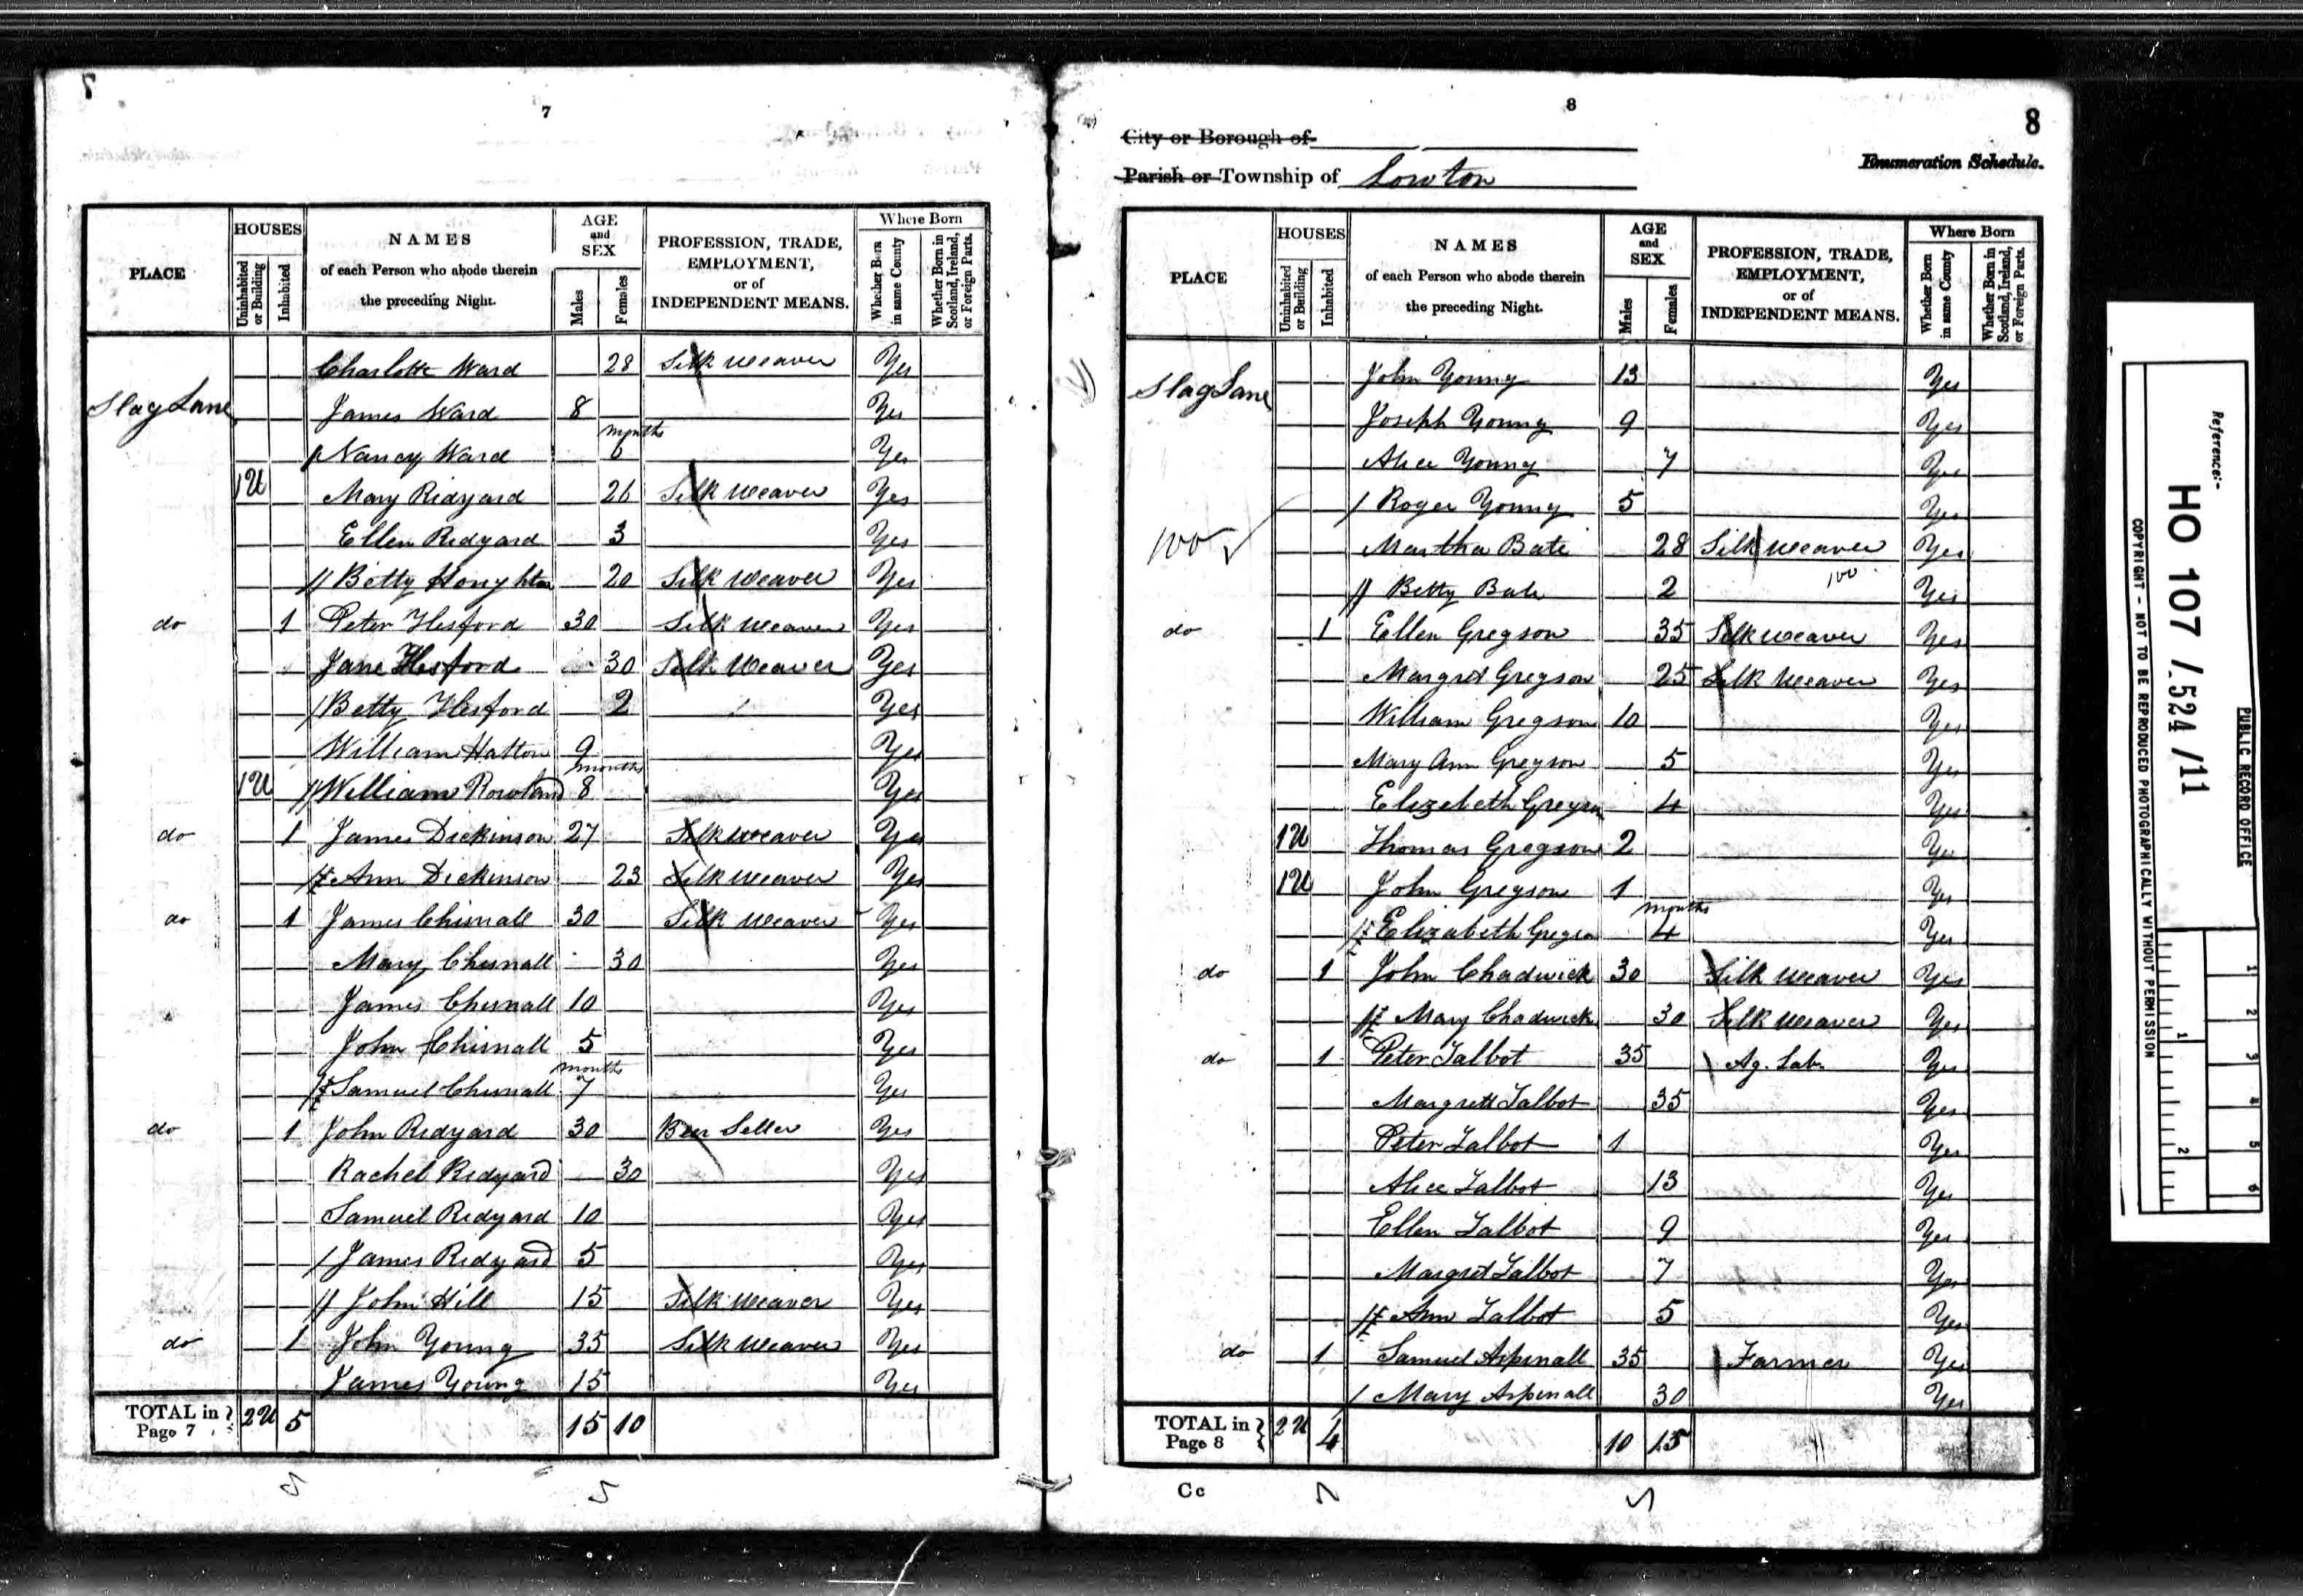 7
HOUSES
AGE and SEX
Where Born
PLACE
Uninhabited or Building
Inhabited
NAMES of each Person who abode therein the preceding Night.
Males
Females
PROFESSION, TRADE, EMPLOYMENT, or of INDEPENDENT MEANS.
Whether Born in same County
Whether Born in Scotland, Ireland, or Foreign Parts.
Charlotte Ward 28 Silk Weaver Yes
Slag Lane James Ward 8 Yes
Nancy Ward months 6 Yes
1U Mary Ridyard 26 Silk Weaver Yes
Ellen Ridyard 3 Yes
// Betty Houghton 20 Silk Weaver Yes
do 1 Peter Hesford 30 Silk Weaver Yes
Jane Hesford 30 Silk Weaver Yes
/ Betty Hesford 2 Yes
William Hatton 9 Yes
1U // William Rowland months 8 Yes
do 1 James Dickinson 27 Silk Weaver Yes
Ann Dickinson 23 Silk Weaver Yes
do 1 James Chisnall 30 Silk Weaver Yes
Mary Chisnall 30 Yes
James Chisnall 10 Yes
John Chisnall 5 Yes
Samuel Chisnall months 7 Yes
do 1 John Ridyard 30 Beer Seller Yes
Rachel Ridyard 30 Yes
Samuel Ridyard 10 Yes
/ James Ridyard 5 Yes
// John Hill 15 Silk Weaver Yes
do 1 John Young 35 Silk Weaver Yes
James Young 15 Yes
TOTAL in Page 7 2U 5 15 10
8
8
City or Borough of
Enumeration Schedule.
Parish or Township of Lowton
HOUSES
AGE and SEX
Where Born
PLACE
Uninhabited or Building
Inhabited
NAMES of each Person who abode therein the preceding Night.
Males
Females
PROFESSION, TRADE, EMPLOYMENT, or of INDEPENDENT MEANS.
Whether Born in same County
Whether Born in Scotland, Ireland, or Foreign Parts.
Slag Lane John Young 13 Yes
Joseph Young 9 Yes
Alice Young 7 Yes
/ Roger Young 5 Yes
100 Martha Bate 28 Silk Weaver Yes
// Betty Bate 2 100 Yes
do 1 Ellen Gregson 35 Silk Weaver Yes
Margret Gregson 25 Silk Weaver Yes
William Gregson 10 Yes
Mary Ann Gregson 5 Yes
Elizebeth Gregson 4 Yes
1U Thomas Gregson 2 Yes
1U John Gregson 1 Yes
Elizabeth Gregson months 4 Yes
do 1 John Chadwick 30 Silk Weaver Yes
Mary Chadwick 30 Silk Weaver Yes
do 1 Peter Talbot 35 Ag. Lab. Yes
Margrett Talbot 35 Yes
Peter Talbot 1 Yes
Alice Talbot 13 Yes
Ellen Talbot 9 Yes
Margret Talbot 7 Yes
Ann Talbot 5 Yes
do 1 Samuel Aspinall 35 Farmer Yes
/ Mary Aspinall 30 Yes
TOTAL in Page 8 2U 4 10 15
Cc
Reference:-
HO 107/524/11
PUBLIC RECORD OFFICE
COPYRIGHT - NOT TO BE REPRODUCED PHOTOGRAPHICALLY WITHOUT PERMISSION
1 2 3 4 5 6
1 2